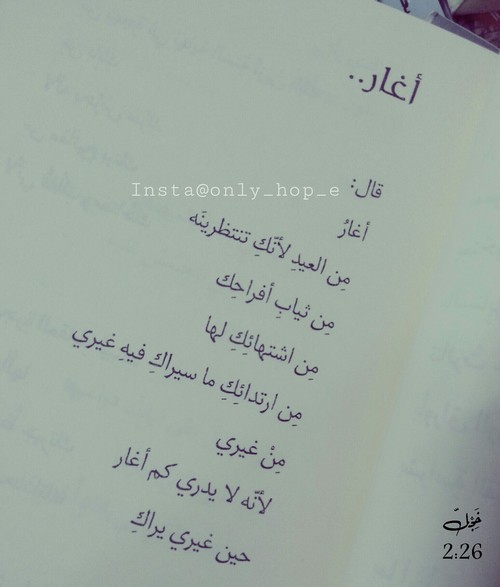 أغار..
قال:
Insta@only_hop_e
أغارُ
مِن العيدِ لأنّكِ تنتظرينَه
مِن ثيابِ أفراحِك
مِن اشتهائِكِ لها
مِن ارتدائِكِ ما سيراكِ فيهِ غيري
مِنْ غيري
لأنّه لا يدري كم أغار
حين غيري يراكِ
2:26